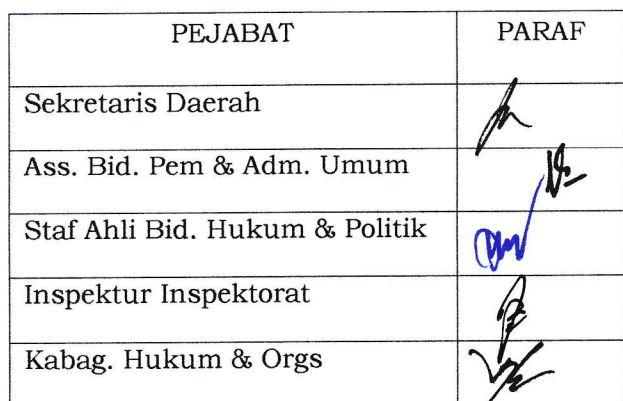 PEJABAT PARAF
Sekretaris Daerah
Ass. Bid. Pem & Adm. Umum
Staf Ahli Bid. Hukum & Politik
Inspektur Inspektorat
Kabag. Hukum & Orgs